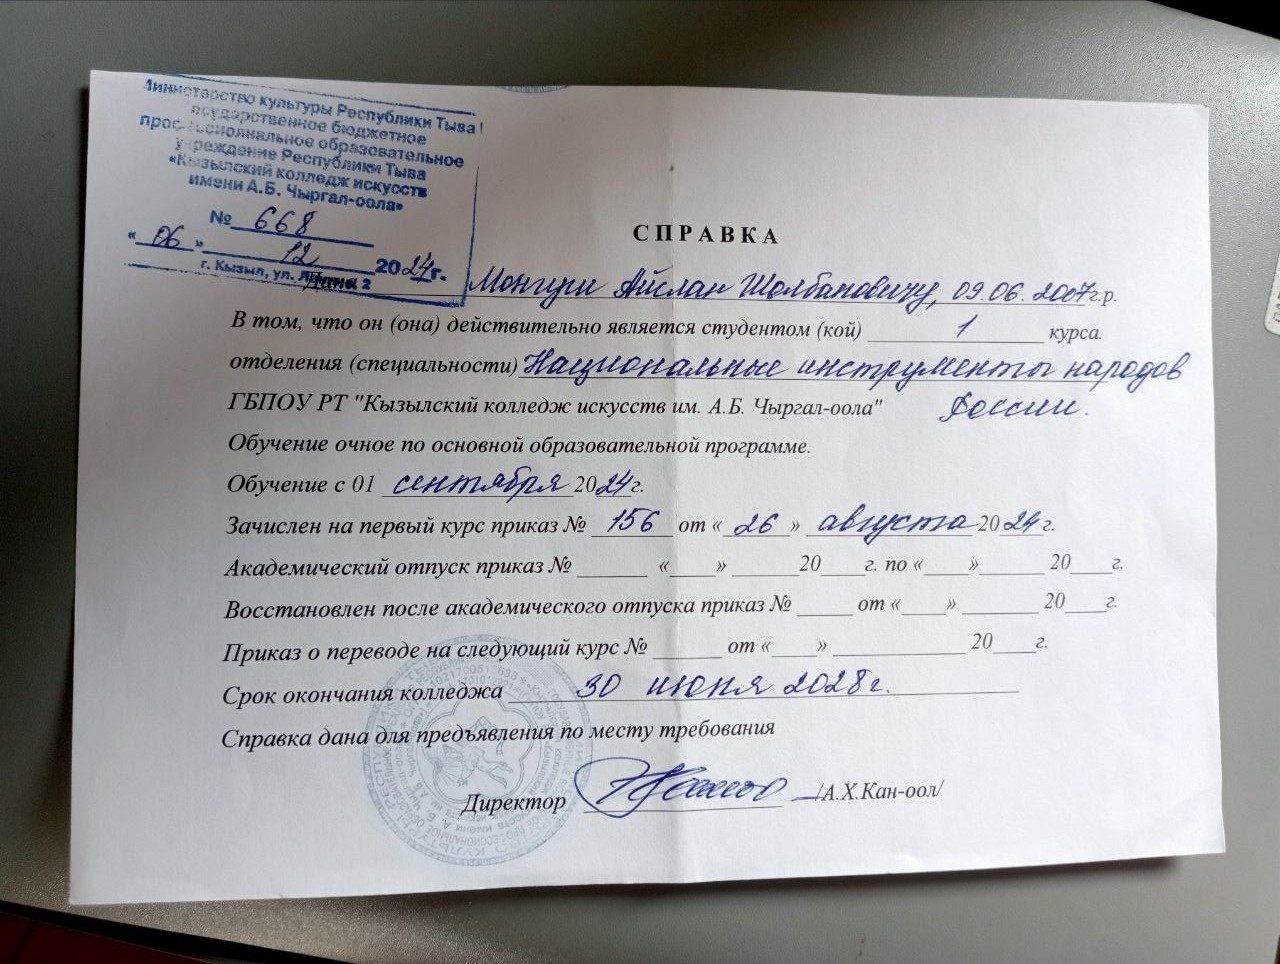 Министерство культуры Республики Тыва
государственное бюджетное
профессиональное образовательное
учреждение Республики Тыва
«Кызылский колледж искусств
имени А.Б. Чыргал-оола»
№ 668
«06» 12 2024г.
г. Кызыл, ул.
СПРАВКА
Дана Монгуш Айслан Шолбановичу, 09.06.2007г.р.
В том, что он (она) действительно является студентом (кой) 1 курса.
отделения (специальности) Национальные инструменты народов
ГБПОУ РТ "Кызылский колледж искусств им. А.Б. Чыргал-оола" России.
Обучение очное по основной образовательной программе.
Обучение с 01 сентября 2024г.
Зачислен на первый курс приказ № 156 от «26» августа 2024г.
Академический отпуск приказ № ______ «____» ______20____г. по «____»______ 20____г.
Восстановлен после академического отпуска приказ № _____ от «____» _______ 20____г.
Приказ о переводе на следующий курс № ______ от «____» ____________ 20____г.
Срок окончания колледжа 30 июня 2028г.
Справка дана для предъявления по месту требования
Директор /А.Х.Кан-оол/